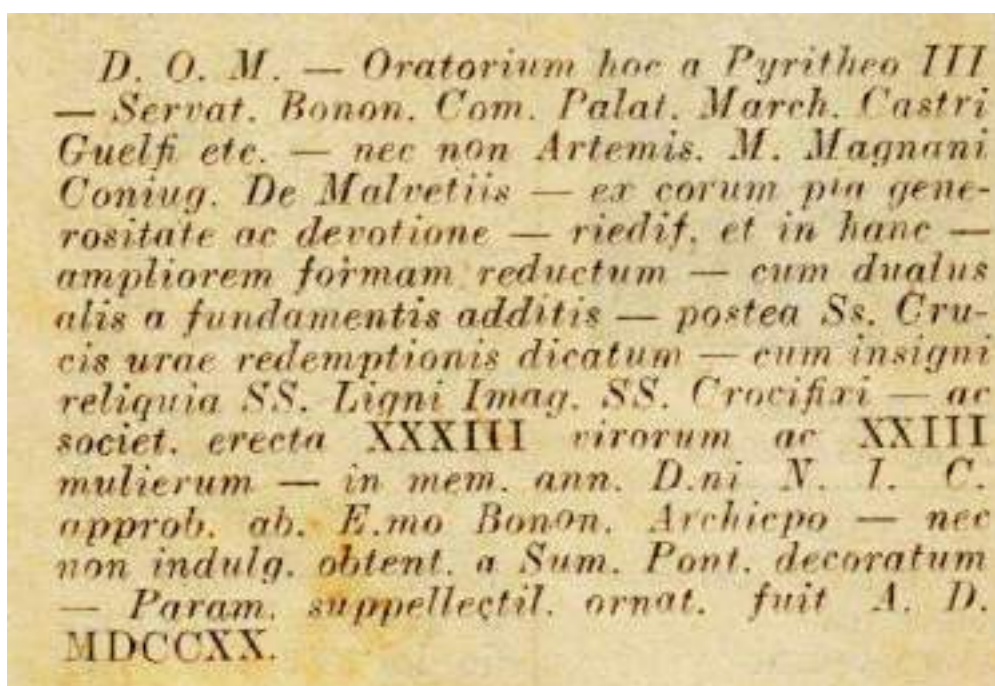 D. O. M. — Oratorium hoc a Pyritheo III
— Servat. Bonon. Com. Palat. March. Castri
Guelfi etc. — nec non Artemis. M. Magnani
Coniug. De Malvetiis — ex corum pia gene-
rositate ac devotione — riedif. et in hanc —
ampliorem formam reductum — cum dualus
alis a fundamentis additis — postea Ss. Cru-
cis urae redemptionis dicatum — cum insigni
reliquia SS. Ligni Imag. SS. Crocifixi — ac
societ. erecta XXXIII virorum ac XXIII
mulierum — in mem. ann. D.ni N. I. C.
approb. ab. E.mo Bonon. Archiepo — nec
non indulg. obtent. a Sum. Pont. decoratum
— Param. suppellectil. ornat. fuit A. D.
MDCCXX.